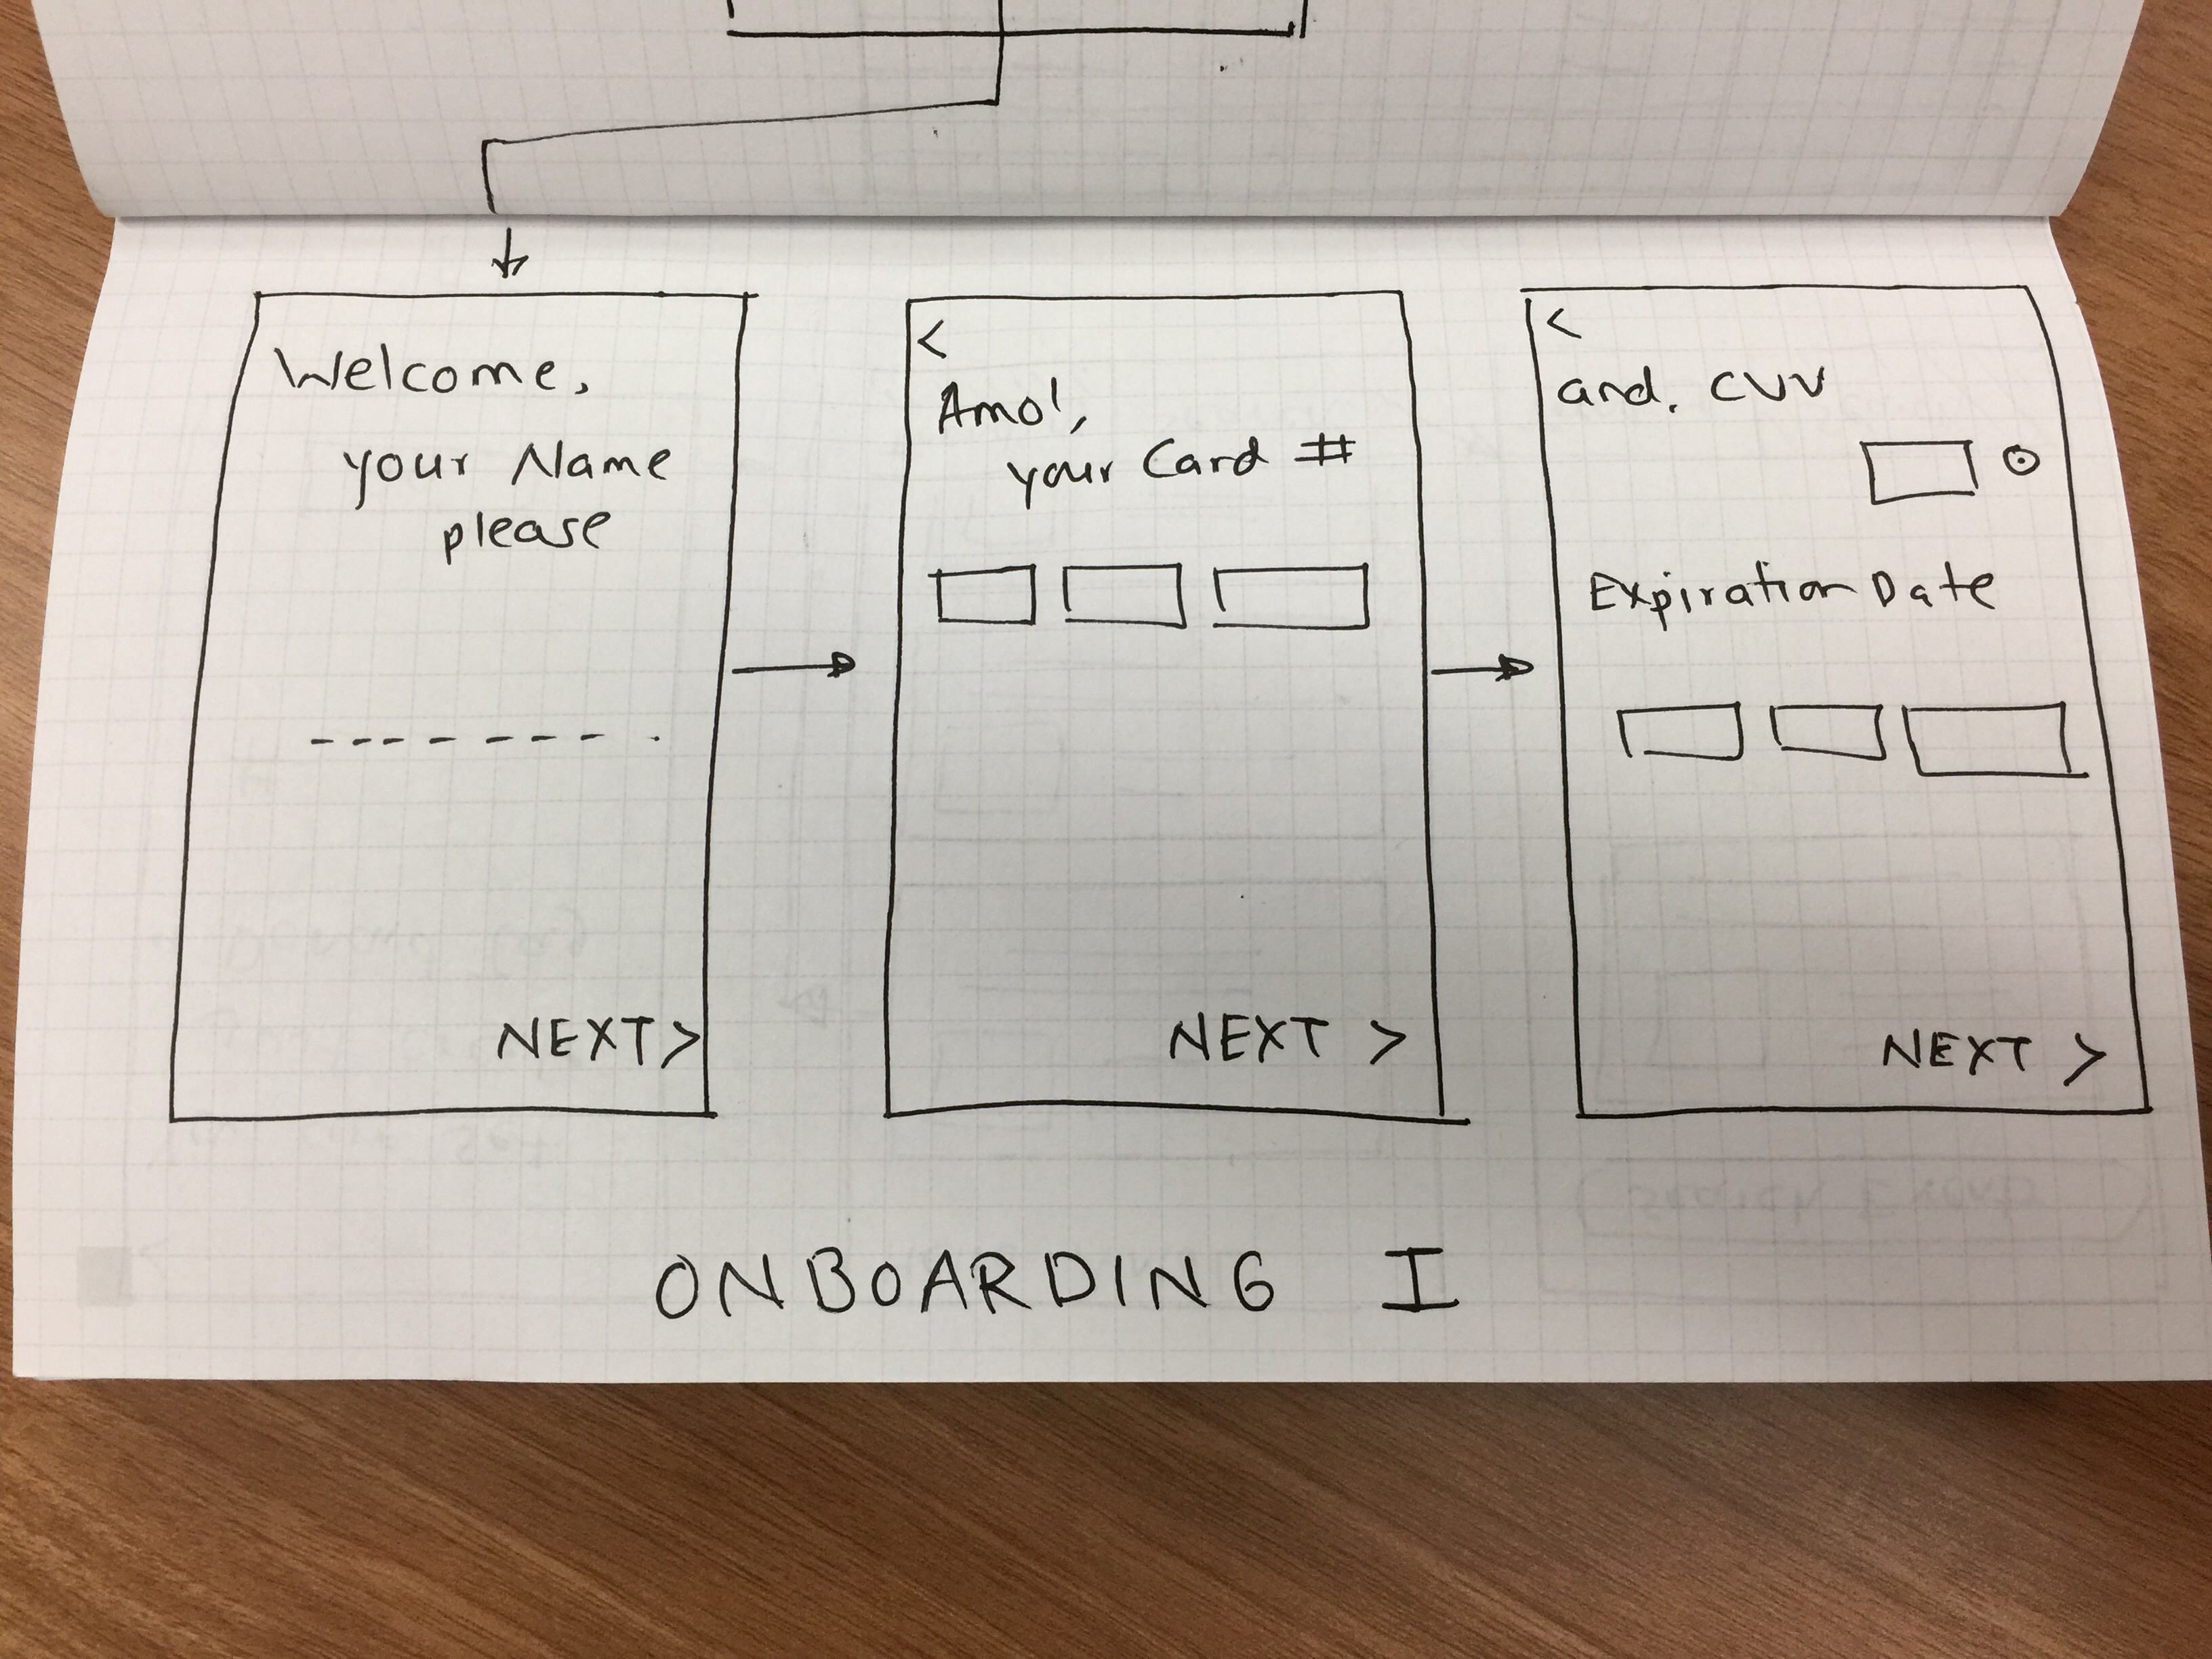 Welcome,
your Name
please
NEXT >
<
Amol,
your Card #
NEXT >
<
and, CVV
Expiration Date
NEXT >
ONBOARDING I